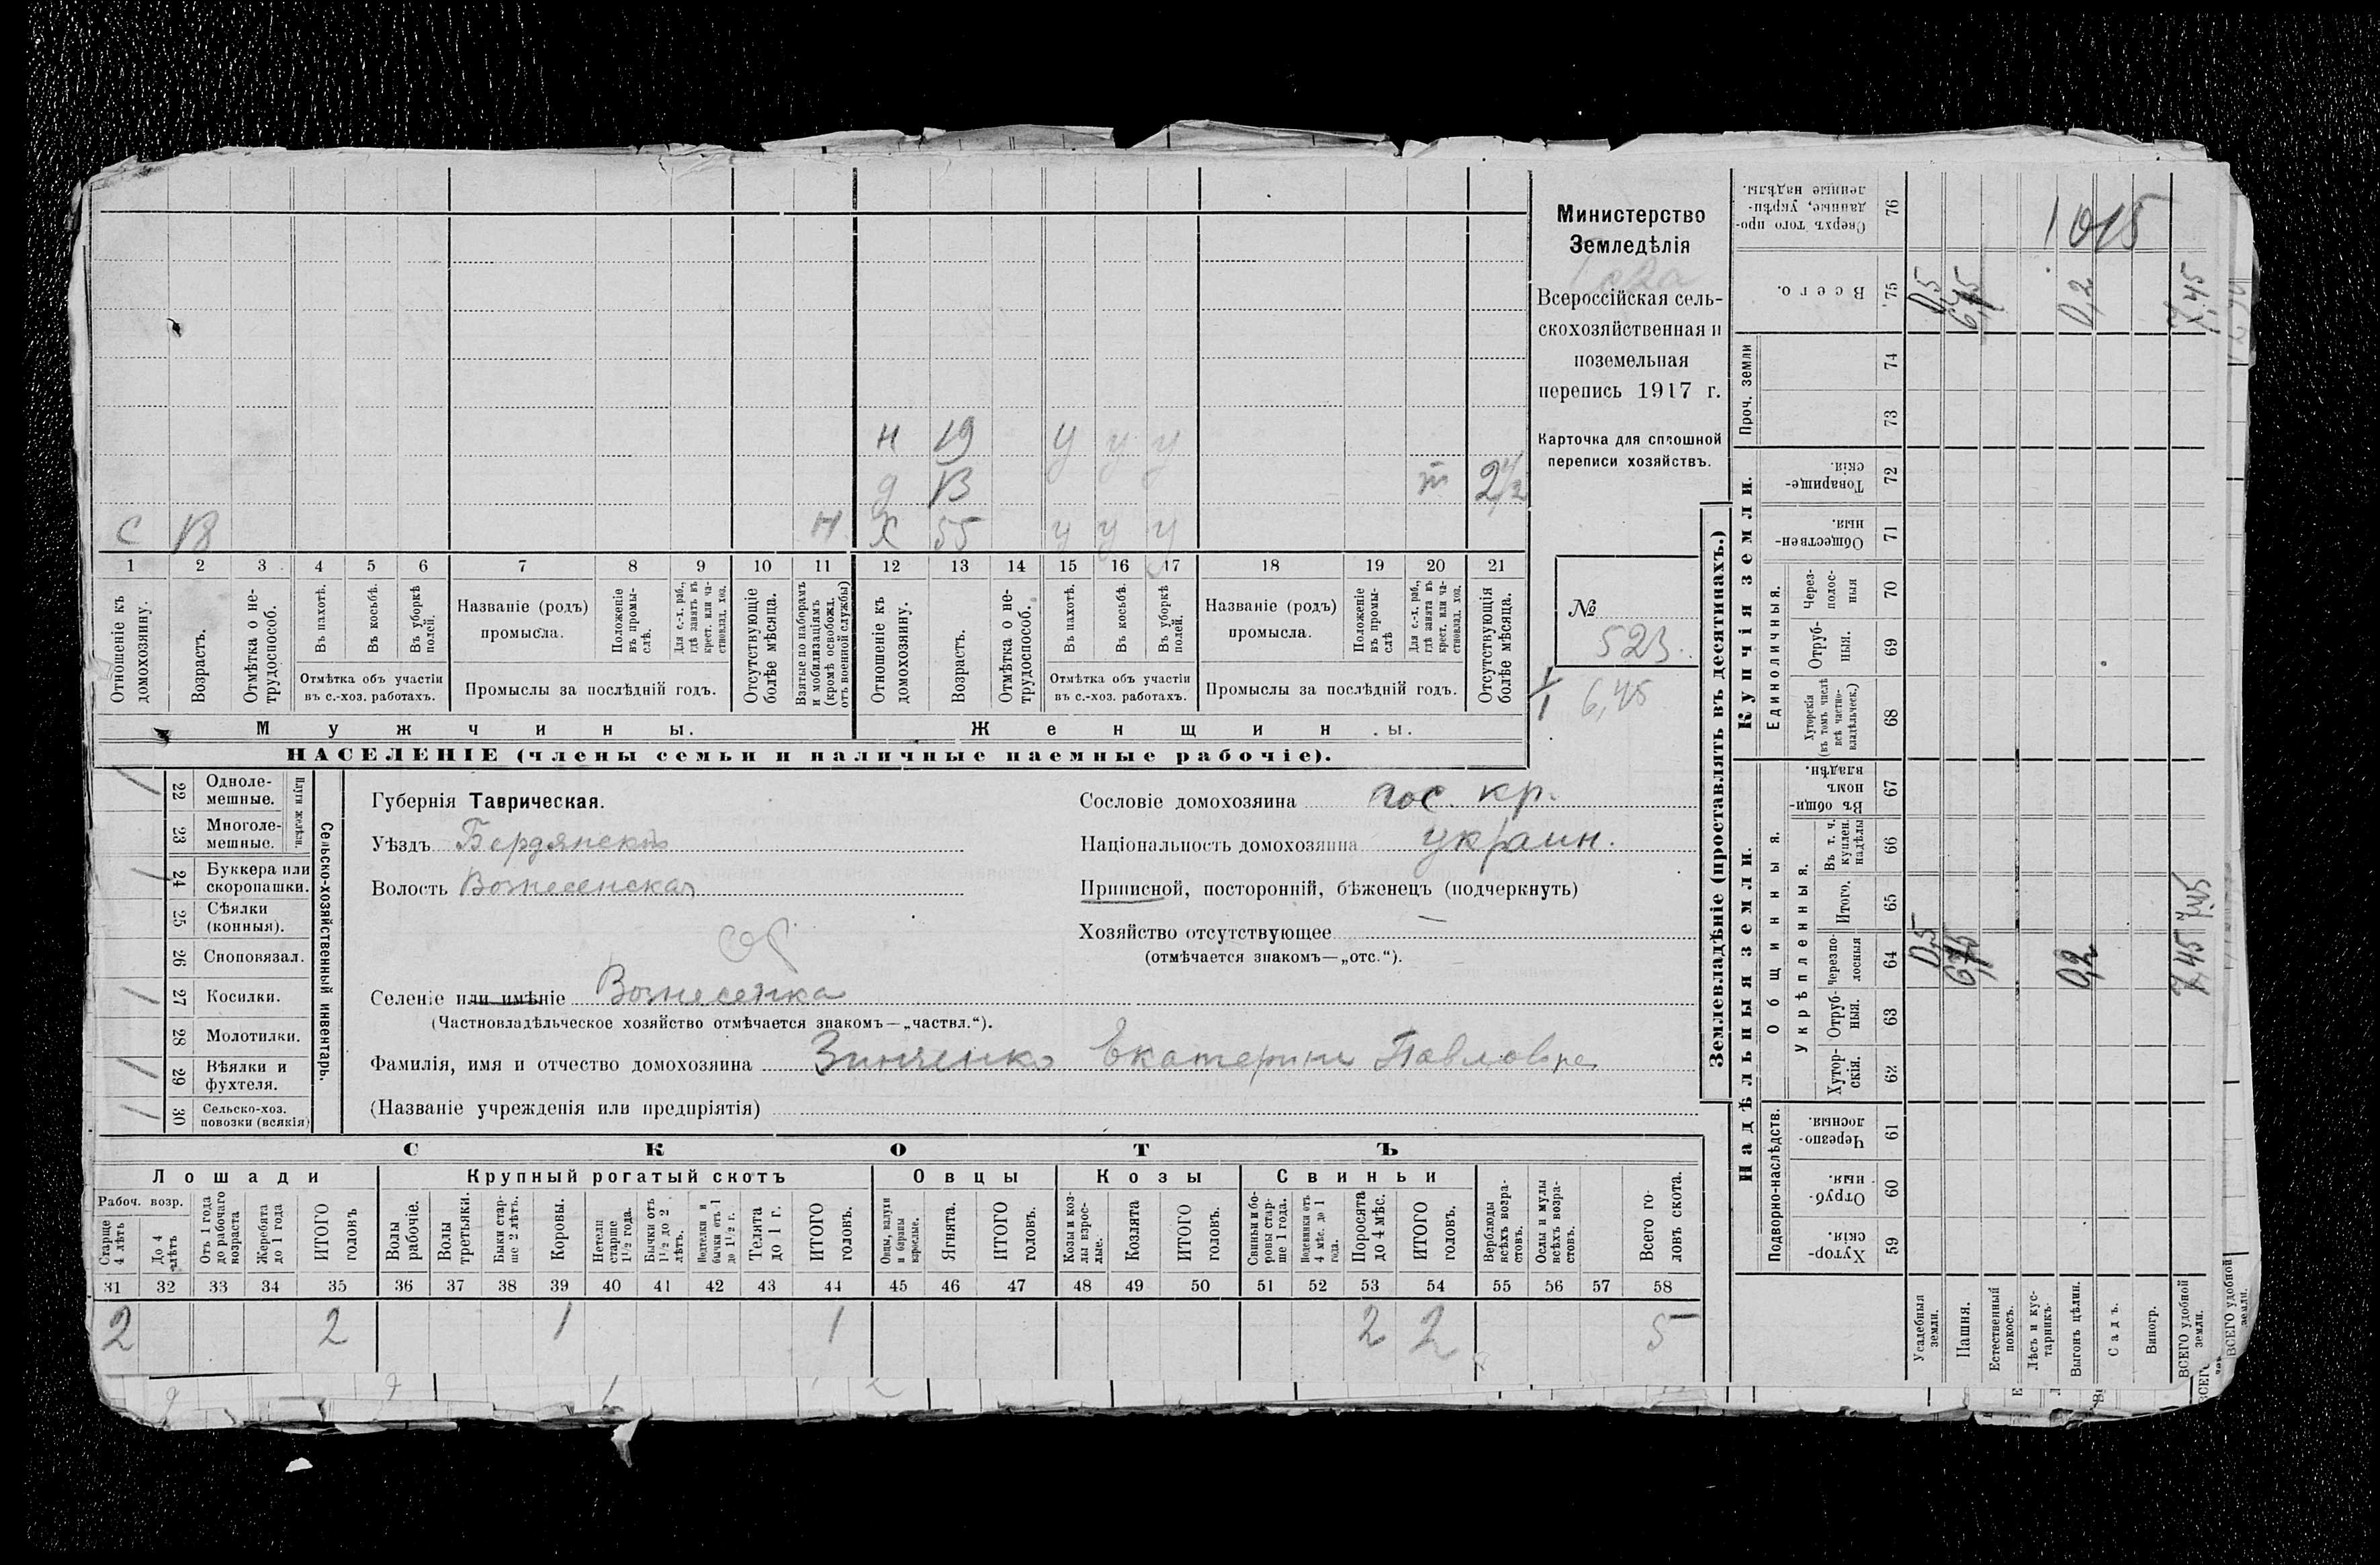 Министерство
Земледѣлія
Всероссійская сель-
скохозяйственная и
поземельная
перепись 1917 г.
Карточка для сплошной
переписи хозяйствъ.
№
523
6,45
н 19 у у у
д 13 т
с 18 н х 55 у у у
1 2 3 4 5 6 7 8 9 10 11 12 13 14 15 16 17 18 19 20 21
Отношеніе къ домохозяину.
Возрастъ.
Отмѣтка о не-трудоспособ.
Въ пахотѣ.
Въ косьбѣ.
Въ уборкѣ полей.
Отмѣтка объ участіи
въ с.-хоз. работахъ.
Названіе (родъ)
промысла.
Положеніе въ промы-слѣ.
Для с.-х. раб., гдѣ занятъ въ крест. или ча-стновлад. хоз.
Промыслы за послѣдній годъ.
Отсутствующіе болѣе мѣсяца.
Взятые по наборамъ и мобилизаціямъ (кромѣ освобожд. отъ военной службы)
Отношеніе къ домохозяину.
Возрастъ.
Отмѣтка о не-трудоспособ.
Въ пахотѣ.
Въ косьбѣ.
Въ уборкѣ полей.
Отмѣтка объ участіи
въ с.-хоз. работахъ.
Названіе (родъ)
промысла.
Положеніе въ промы-слѣ
Для с.-х. раб., гдѣ занята въ крест. или ча-стновлад. хоз.
Промыслы за послѣдній годъ.
Отсутствующія болѣе мѣсяца.
Мужчины.
Женщины.
НАСЕЛЕНІЕ (члены семьи и наличные наемные рабочіе).
Сельско-хозяйственный инвентарь.
Плуги желѣзн.
22 Одноле-мешные. /
23 Многоле-мешные.
24 Буккера или скоропашки. /
25 Сѣялки (конныя).
26 Сноповязал.
27 Косилки. /
28 Молотилки.
29 Вѣялки и фухтеля. /
30 Сельско-хоз. повозки (всякія) /
Губернія Таврическая.
Уѣздъ Бердянскій
Волость Вознесенская
Селеніе или имѣніе Вознесенка
(Частновладѣльческое хозяйство отмѣчается знакомъ—„частвл.“).
Фамилія, имя и отчество домохозяина Зинченко Екатерины Павловне
(Названіе учрежденія или предпріятія)
Сословіе домохозяина гос. кр.
Національность домохозяина украин.
Приписной, посторонній, бѣженецъ (подчеркнуть)
Хозяйство отсутствующее —
(отмѣчается знакомъ—„отс.“).
СКОТЪ
Лошади
Крупный рогатый скотъ
Овцы
Козы
Свиньи
Рабоч. возр.
Старше 4 лѣтъ
До 4 лѣтъ
Отъ 1 года до рабочаго возраста
Жеребята до 1 года
ИТОГО головъ
Волы рабочіе.
Волы третьяки.
Быки стар-ше 2 лѣтъ.
Коровы.
Нетели старше 1½ года.
Бычки отъ 1½ до 2 лѣтъ.
Подтелки и бычки отъ 1 до 1½ г.
Телята до 1 г.
ИТОГО головъ.
Овцы, валухи и бараны взрослые.
Ягнята.
ИТОГО головъ.
Козы и коз-лы взрос-лые.
Козлята
ИТОГО головъ.
Свиньи и бо-ровы стар-ше 1 года.
Подсвинки отъ 4 мѣс. до 1 года.
Поросята до 4 мѣс.
ИТОГО головъ.
Верблюды всѣхъ возра-стовъ.
Ослы и мулы всѣхъ возра-стовъ.
Всего го-ловъ скота.
31 32 33 34 35 36 37 38 39 40 41 42 43 44 45 46 47 48 49 50 51 52 53 54 55 56 57 58
2 2 1 1 2 2 5
Землевладѣніе (проставлять въ десятинахъ.)
Надѣльныя земли.
Купчія земли.
Проч. земли
Подворно-наслѣдств.
Общинныя.
Укрѣпленныя.
Единоличныя.
Хутор-скія. 59
Отруб-ныя. 60
Черезпо-лосныя. 61
Хутор-скія. 62
Отруб-ныя. 63
Черезпо-лосныя 64
Итого. 65
Въ т. ч. куплен. надѣлы 66
Въ общи-номъ владѣн. 67
Хуторскія (въ томъ числѣ всѣ частно-владѣльческ.) 68
Отруб-ныя. 69
Через-полос-ныя 70
Обществен-ныя. 71
Товарище-скія. 72
73
74
Всего. 75
Сверхъ того про-данные, укрѣп-ленные надѣлы. 76
Усадебныя земли. 0,5 0,5
Пашня.
Естественный покосъ.
Лѣсъ и кус-тарникъ.
Выгонъ цѣлин. 0,2 0,2
Садъ.
Виногр.
ВСЕГО удобной земли. 7,45 7,45 7,45
1015
ВСЕГО удобной земли.